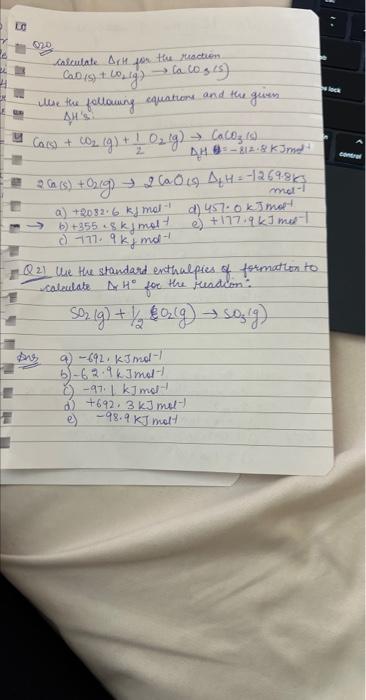 Q20
calculate ΔrH for the reaction
CaO(s) + CO2(g) → CaCO3(s)
Use the following equations and the given
ΔH's.
Ca(s) + CO2(g) + 1/2 O2(g) → CaCO3(s)
ΔtH = -812.8 KJmol-1
2Ca(s) + O2(g) → 2CaO(s) ΔtH = -1269.8KJ
mol-1
a) +2082.6 kJ mol-1 d) 457.0 KJ mol-1
→ b) +355.8 kJ mol-1 e) +177.9 kJ mol-1
c) -177.9 kJ mol-1
Q21 Use the standard enthalpies of formation to
calculate ΔrH° for the reaction:
SO2(g) + 1/2 O2(g) → SO3(g)
Ans a) -692. KJmol-1
b) -62.9 KJ mol-1
c) -97.1 kJ mol-1
d) +692.3 KJ mol-1
e) -98.9 KJ mol-1
s lock
control